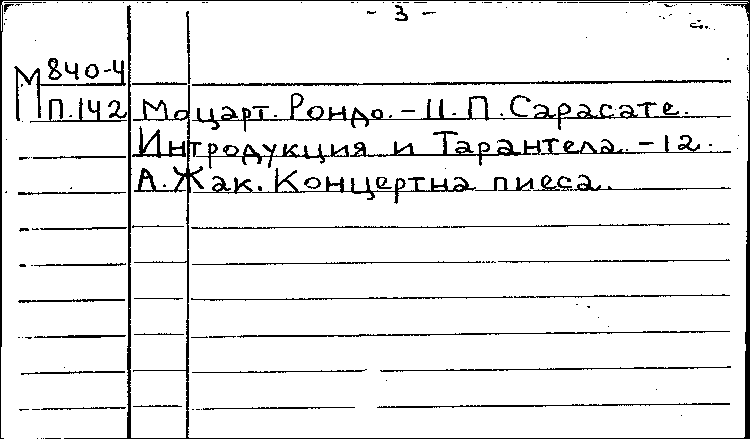 - 3 -
М 840-4
П.142 Моцарт. Рондо. - 11. П. Сарасате.
Интродукция и Тарантела. - 12.
А. Жак. Концертна пиеса.